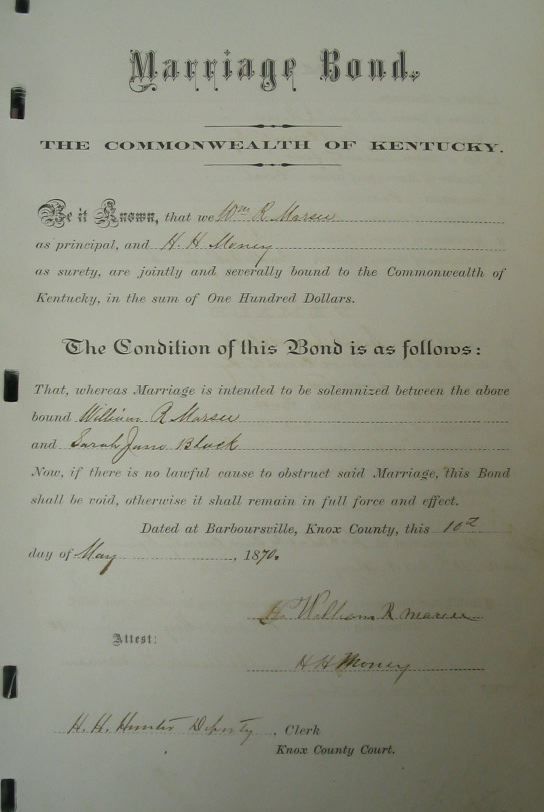 Marriage Bond.
THE COMMONWEALTH OF KENTUCKY.
Be it Known, that we Wm R Marsee
as principal, and H. H. Money
as surety, are jointly and severally bound to the Commonwealth of
Kentucky, in the sum of One Hundred Dollars.
The Condition of this Bond is as follows:
That, whereas Marriage is intended to be solemnized between the above
bound William R Marsee
and Sarah Jane Black
Now, if there is no lawful cause to obstruct said Marriage, this Bond
shall be void, otherwise it shall remain in full force and effect.
Dated at Barboursville, Knox County, this 10th
day of May, 1870.
William R Marsee
Attest:
H H Money
H. H. Hunter Deputy, Clerk
Knox County Court.